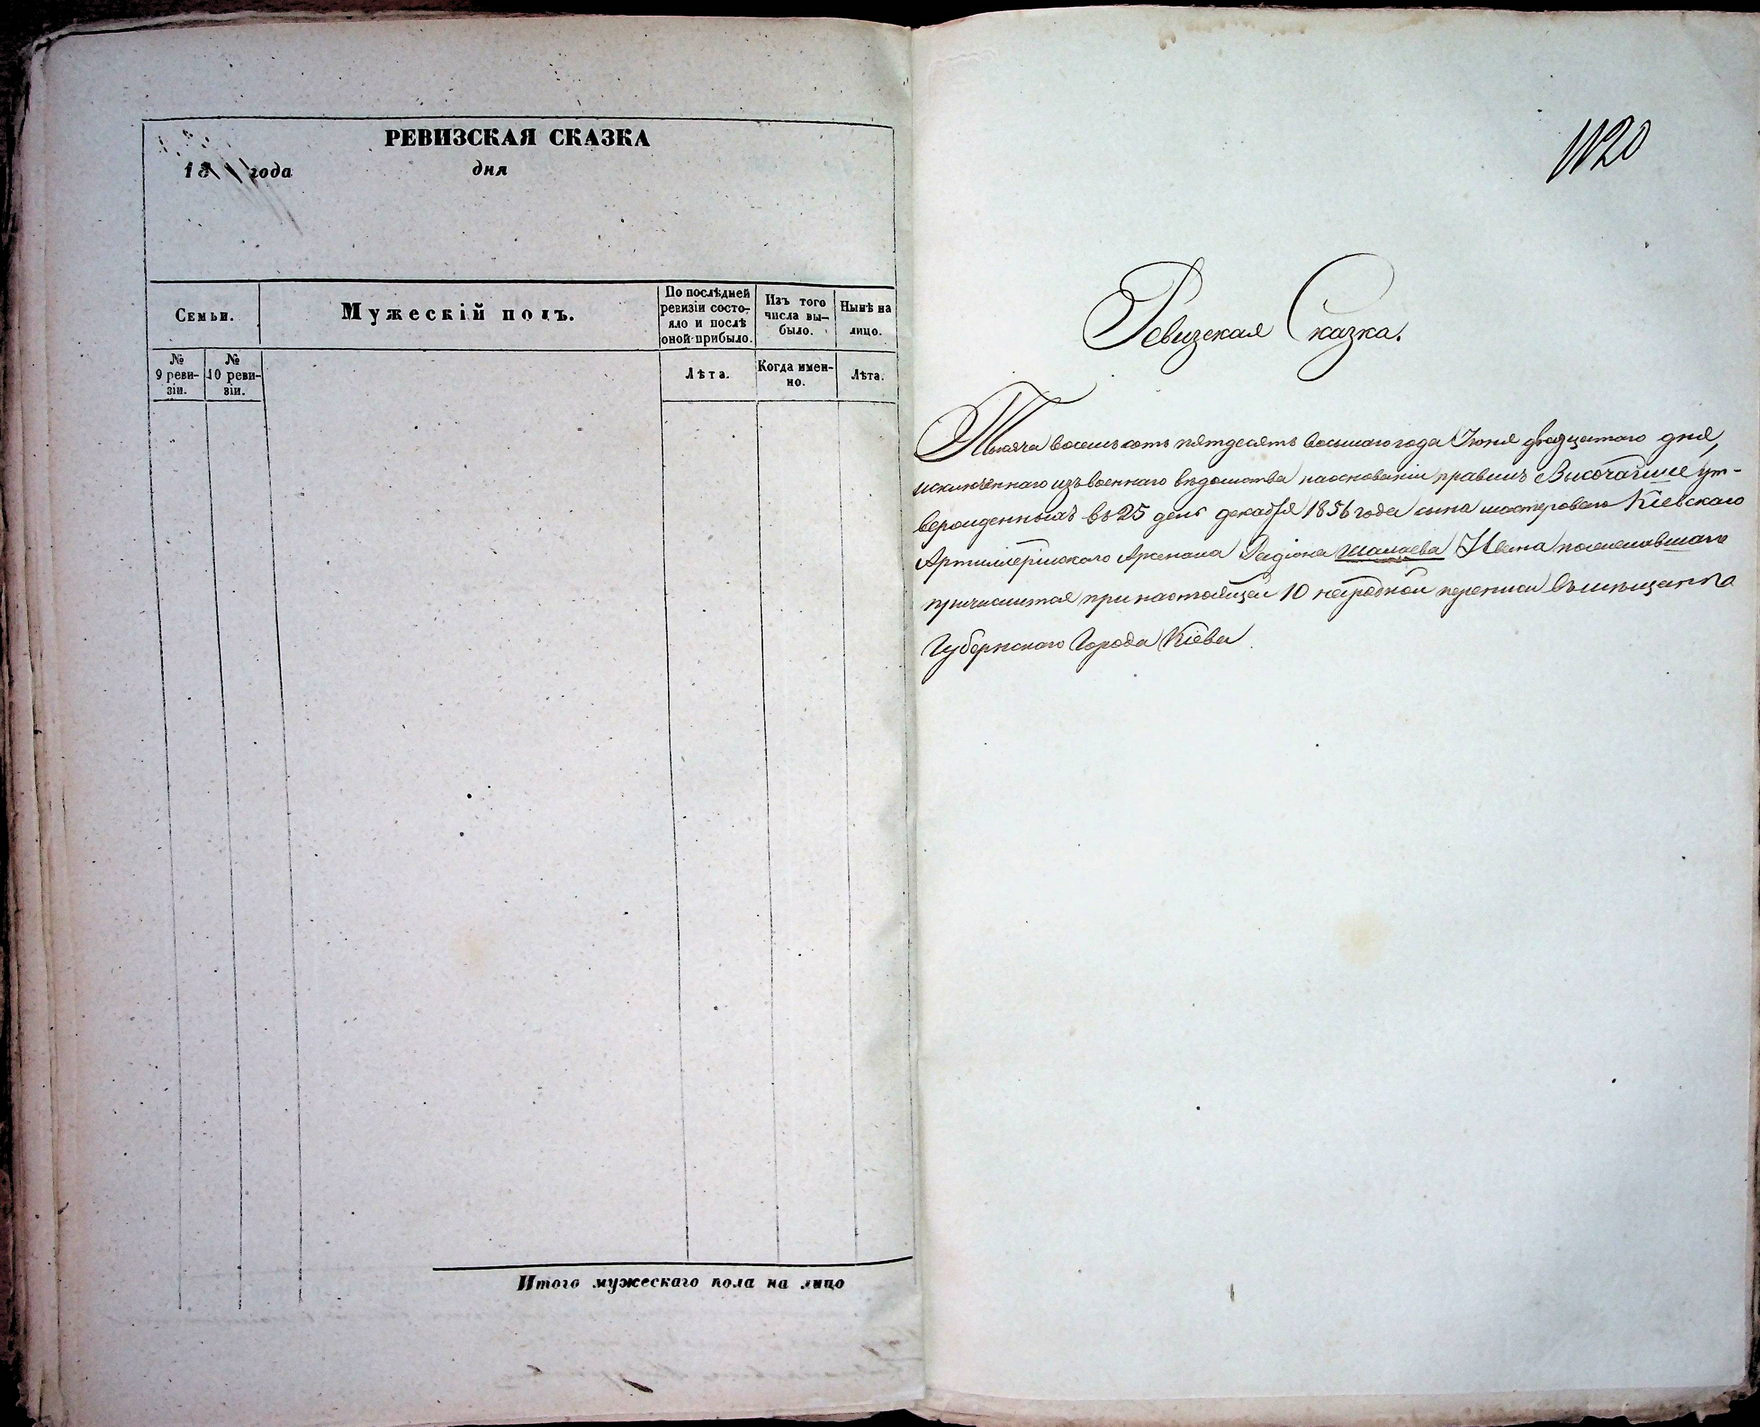 РЕВИЗСКАЯ СКАЗКА
18 года дня
Семьи.
Мужескій полъ.
По послѣдней
ревизіи состо-
яло и послѣ
оной прибыло.
Изъ того
числа вы-
было.
Нынѣ на
лицо.
№
9 реви-
зіи.
№
10 реви-
зіи.
Лѣта.
Когда имен-
но.
Лѣта.
Итого мужескаго пола на лицо
1120
Ревизская Сказка.
Тысяча восемьсотъ пятдесятъ восьмаго года Іюня двадцатаго дня,
исключеннаго изъ военнаго вѣдомства на основаніи правилъ Высочайше ут-
вержденныхъ въ 25 день декабря 1856 года сына мастероваго Кіевскаго
Артиллерійскаго Арсенала Радіона Шамаева Ивана пожелавшаго
причислится при настоящей 10 народной переписи въ мѣщане
Губернскаго Города Кіева.